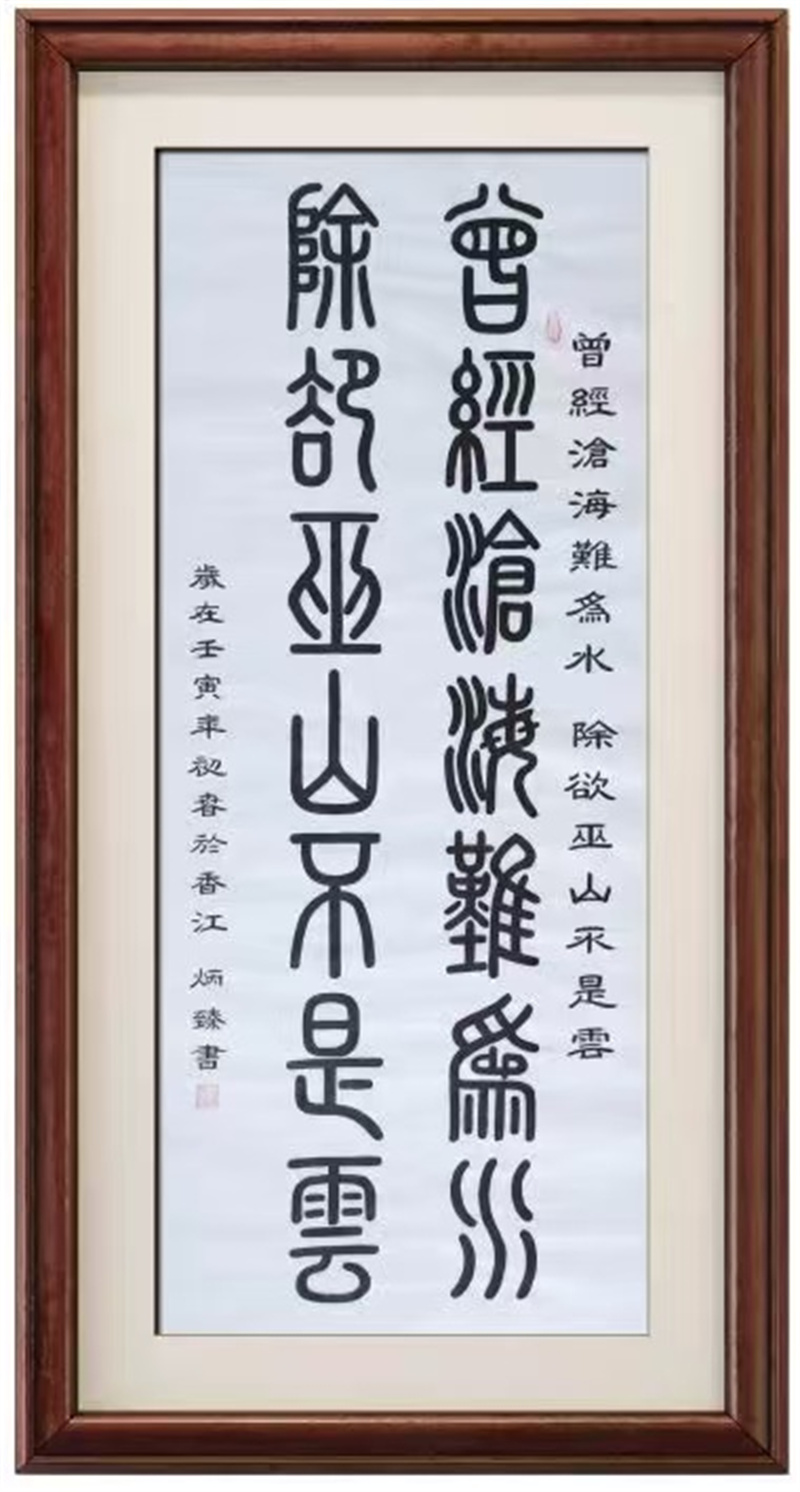 曾經滄海難為水 除欲巫山不是雲
曾經滄海難為水
除卻巫山不是雲
歲在壬寅年初春於香江 炳臻書